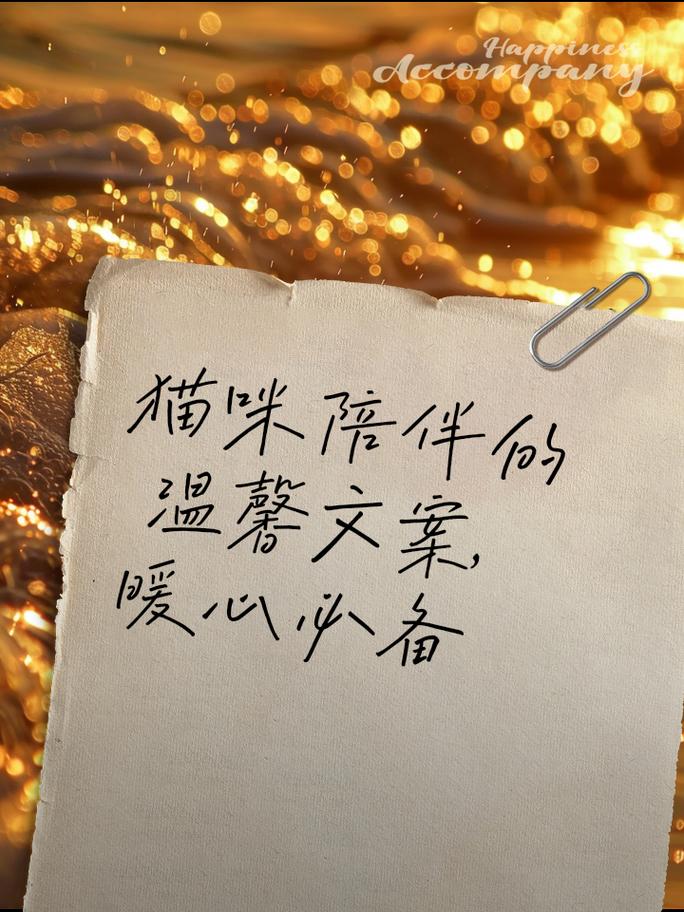 Happiness
Accompany
猫咪陪伴的
温馨文案，
暖心必备